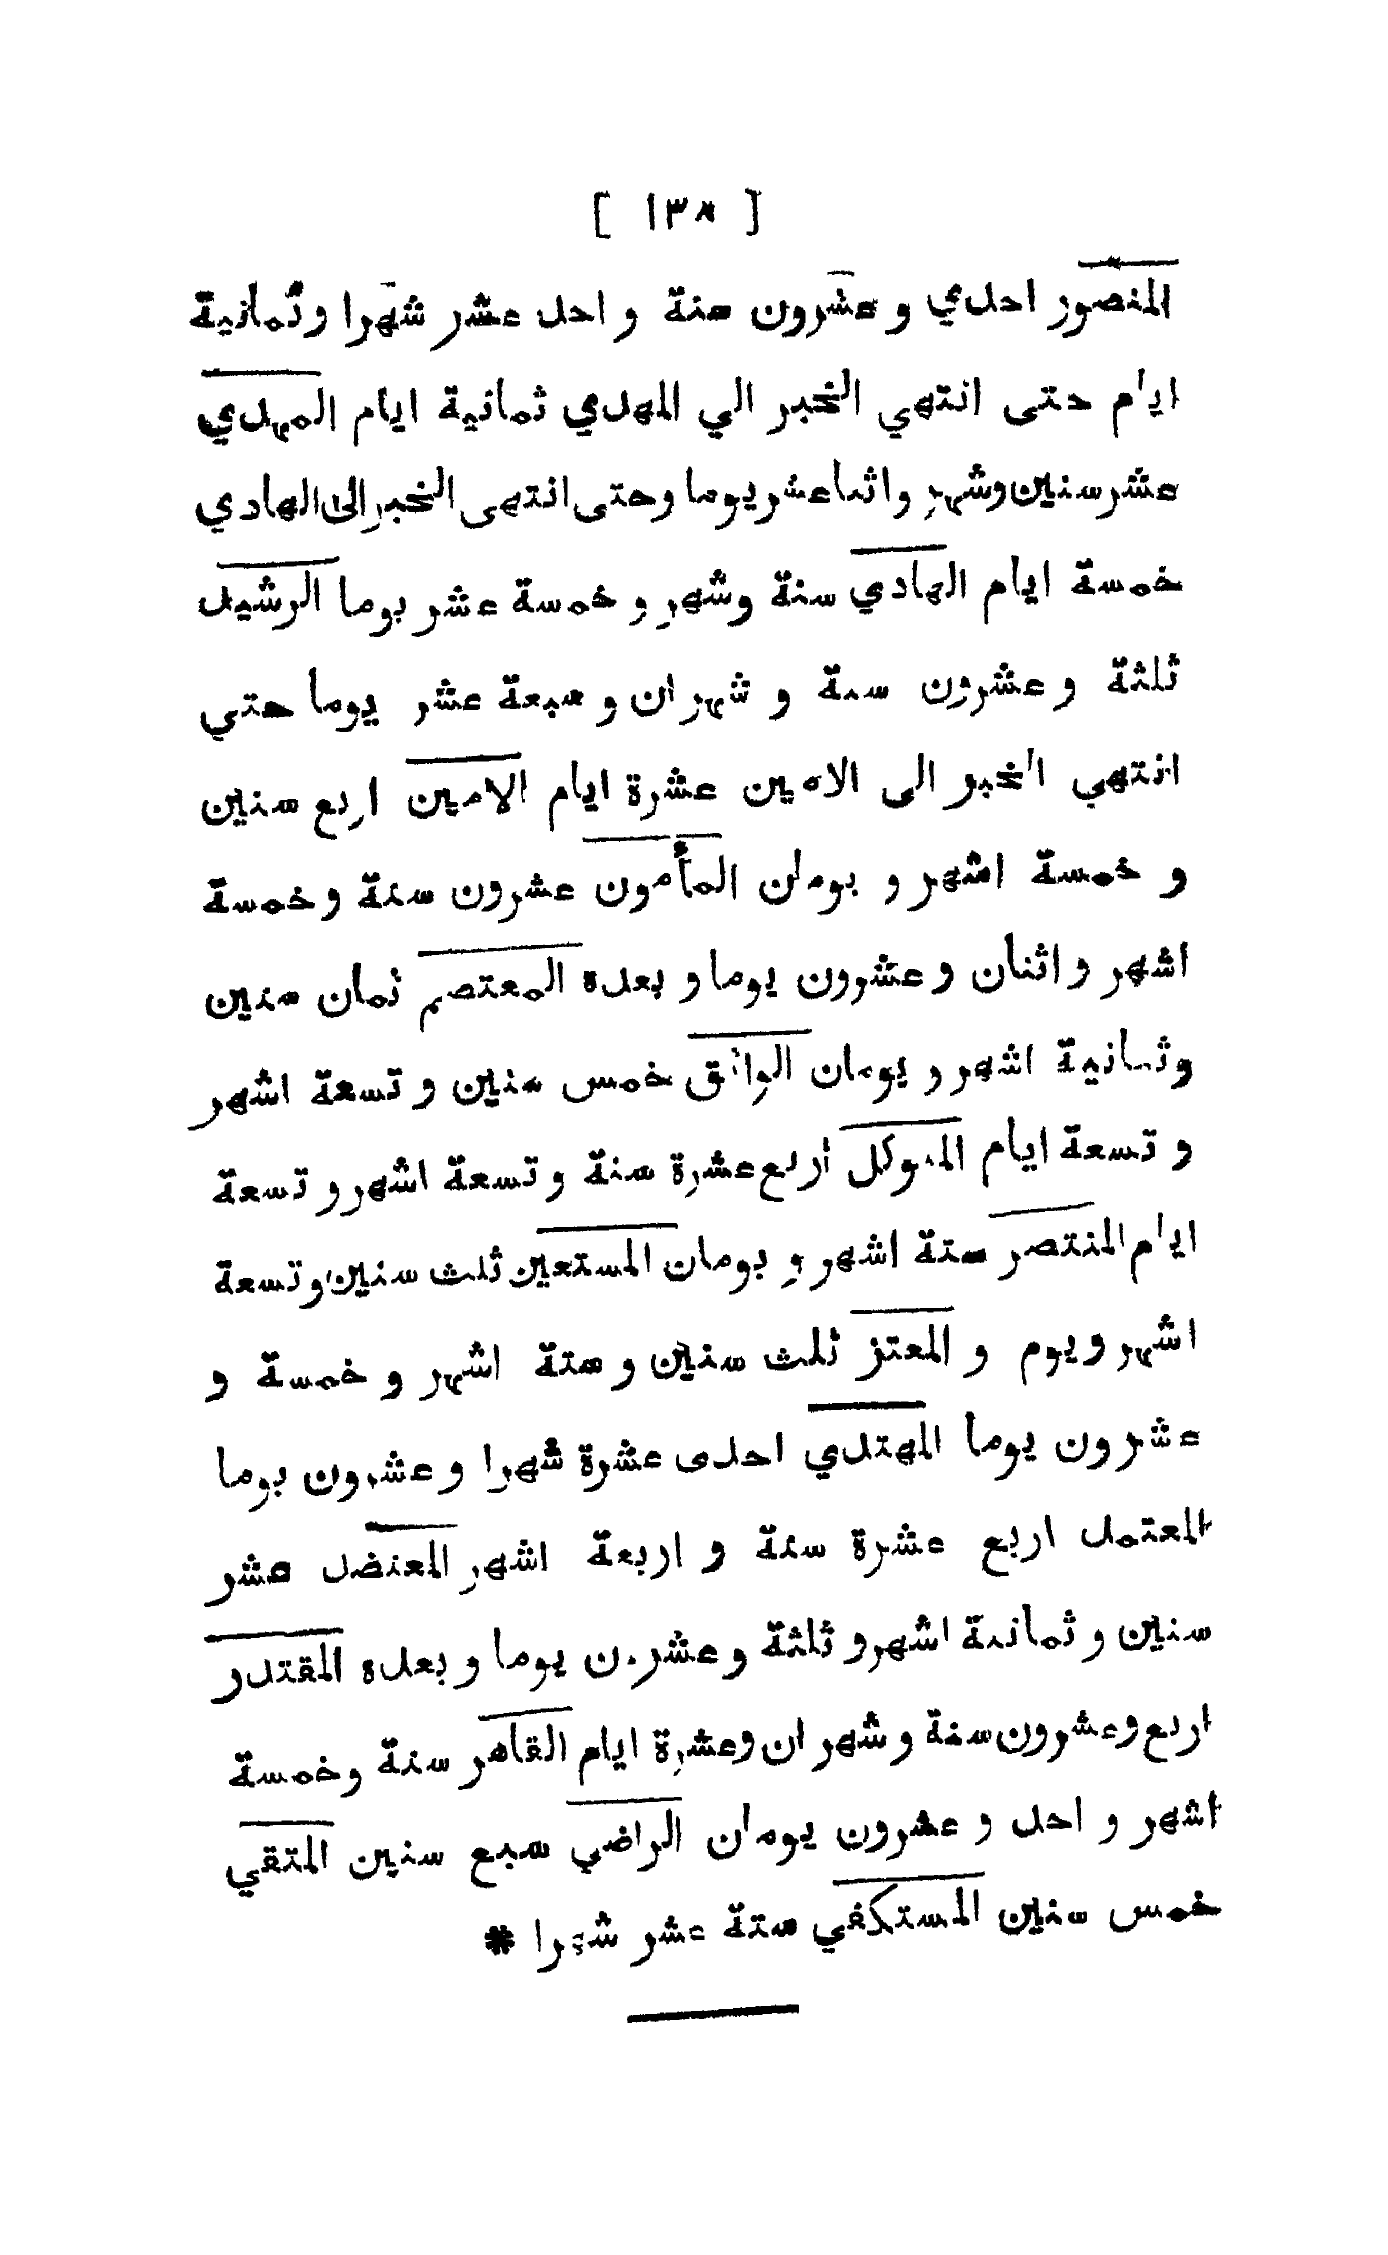 [ ١٣٨ ]
المنصور احدي و عشرون سنة و احد عشر شهرا وثمانية
ايام حتى انتهي الخبر الي المهدي ثمانية ايام المهدي
عشرسنين وشهر واثنا عشر يوما وحتى انتهى الخبر الى الهادي
خمسة ايام الهادي سنة وشهر و خمسة عشر يوما الرشيد
ثلثة و عشرون سنة و شهران و سبعة عشر يوما حتي
انتهي الخبر الى الامين عشرة ايام الامين اربع سنين
و خمسة اشهر و يومان المأمون عشرون سنة وخمسة
اشهر و اثنان و عشرون يوما و بعده المعتصم ثمان سنين
وثمانية اشهر و يومان الواثق خمس سنين و تسعة اشهر
و تسعة ايام المتوكل اربع عشرة سنة و تسعة اشهر و تسعة
ايام المنتصر ستة اشهر و يومان المستعين ثلث سنين و تسعة
اشهر و يوم و المعتز ثلث سنين و ستة اشهر و خمسة و
عشرون يوما المهتدي احدى عشرة شهرا و عشرون يوما
المعتمد اربع عشرة سنة و اربعة اشهر المعتضد عشر
سنين و ثمانية اشهر و ثلثة و عشرون يوما و بعده المقتدر
اربع وعشرون سنة و شهران وعشرة ايام القاهر سنة وخمسة
اشهر و احد و عشرون يومان الراضي سبع سنين المتقي
خمس سنين المستكفي ستة عشر شهرا *